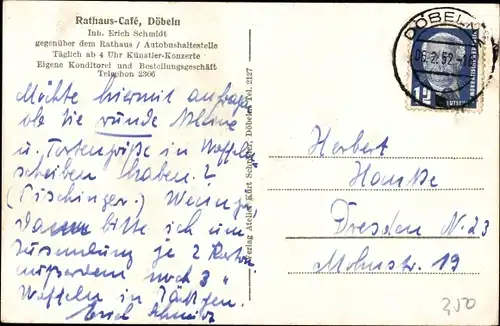 Rathaus-Café, Döbeln
Inh. Erich Schmidt
gegenüber dem Rathaus / Autobushaltestelle
Täglich ab 4 Uhr Künstler-Konzerte
Eigene Konditorei und Bestellungsgeschäft
Telephon 2306
Möchte hiermit anfragen
ob Sie runde kleine
u. Tortengröße in Waffel
scheiben haben?
(Pischinger.) Wenn ja,
dann bitte ich um
Zusendung je 2 Karton
außerdem noch 3 "
Waffeln in
Erich Schmidt
Verlag Atelier Kurt Döbeln Tel. 2127
DÖBELN
12
Herbert
Hanske
Dresden N. 23
Mohnstr. 19
350